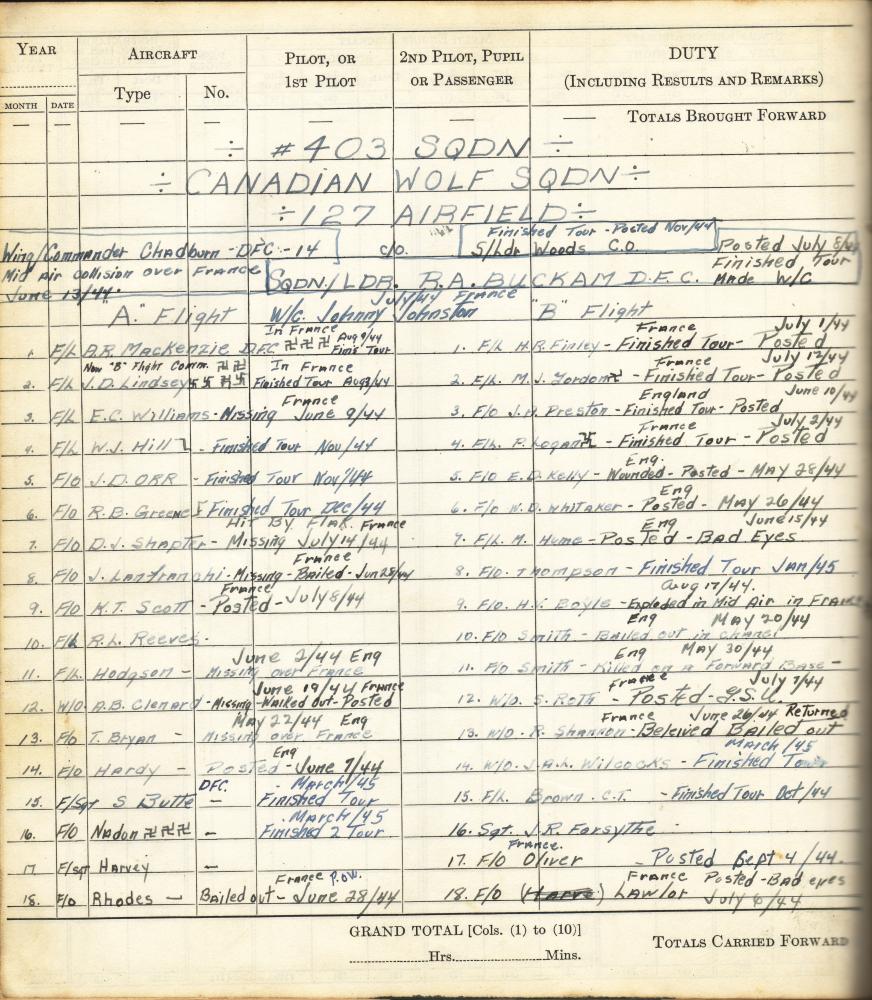 YEAR AIRCRAFT PILOT, OR 1ST PILOT 2ND PILOT, PUPIL OR PASSENGER DUTY (INCLUDING RESULTS AND REMARKS)
MONTH DATE Type No.
— — — — — — TOTALS BROUGHT FORWARD
÷ #403 SQDN ÷
÷ CANADIAN WOLF SQDN ÷
÷ 127 AIRFIELD ÷
Wing/Commander Chadburn - DFC - 14
Mid Air collision over France
June 13/44.
c/o.
Finished Tour - Posted Nov/44
S/Ldr Woods C.O.
Posted July 8/44
Finished Tour
Made W/C
SQDN/LDR. R.A. BUCKAM D.F.C.
July/44 France
W/C. Johnny Johnston
"A." Flight
1. F/L A.R. MacKenzie DFC 卐 卐 卐 In France Aug 9/44 Fini's Tour
Now "B" Flight Comm. 卐 卐
2. F/L J.D. Lindsey 卐 卐 卐 卐 In France Finished Tour Aug 3/44
3. F/L E.C. Williams - Missing France June 9/44
4. F/L W.J. Hill - Finished Tour Nov/44
5. F/O J.D. ORR - Finished Tour Nov/44
6. F/O R.B. Greene Finished Tour Dec/44
7. F/O D.J. Shapter - Hit By Flak. France Missing July 14/44
8. F/O J. Lanfranchi - Missing - Bailed - Jun 28/44 France
9. F/O K.T. Scott - France Posted - July 8/44
10. F/L R.L. Reeves.
11. F/L. Hodgson - June 2/44 Eng Missing over France
12. W/O. A.B. Clenard - Missing - Walked out - Posted June 19/44 France
13. F/O T. Bryan - May 22/44 Eng Missing over France
14. F/O Hardy - Posted - June 7/44 Eng
15. F/Sgt S Butte DFC. March/45 Finished Tour
16. F/O Nadon 卐 卐 卐 — March/45 Finished 2 Tour
17 F/Sgt Harvey —
18. F/O Rhodes — Bailed out - June 28/44 France P.O.W.
"B" Flight
1. F/L H.R. Finley - Finished Tour - Posted France July 1/44
2. F/L M.J. Gordon 卐 - Finished Tour - Posted France July 12/44
3. F/O J.H. Preston - Finished Tour - Posted England June 10/44
4. F/L. P. Logan 卐 - Finished Tour - Posted France July 2/44
5. F/O E.D. Kelly - Wounded - Posted - MAY 28/44 Eng.
6. F/O W.D. Whitaker - Posted - MAY 26/44 Eng
7. F/L. M. Hume - Posted - Bad Eyes Eng June 15/44
8. F/O. Thompson - Finished Tour Jan/45
9. F/L. H.V. Boyle - Exploded in Mid Air in France Aug 17/44.
10. F/O Smith - Bailed out in chanel Eng MAY 20/44
11. F/O Smith - Killed on a Forward Base - Eng MAY 30/44
12. W/O. S. Roth - Posted - G.S.U. France July 7/44
13. W/O. R. Shannon - Beleived Bailed out France June 26/44 Returned
14. W/O. J.A.L. Wilcocks - Finished Tour March/45
15. F/L. Brown. C.T. - Finished Tour Oct/44
16. Sgt. J.R. Forsythe
17. F/O Oliver France. - Posted Sept 4/44.
18. F/O (Harve) LAWlor France Posted - Bad eyes July 6/44
GRAND TOTAL [Cols. (1) to (10)]
Hrs. Mins.
TOTALS CARRIED FORWARD